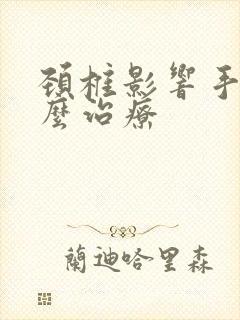 頚椎影響手
麼治療
蘭迪哈里森